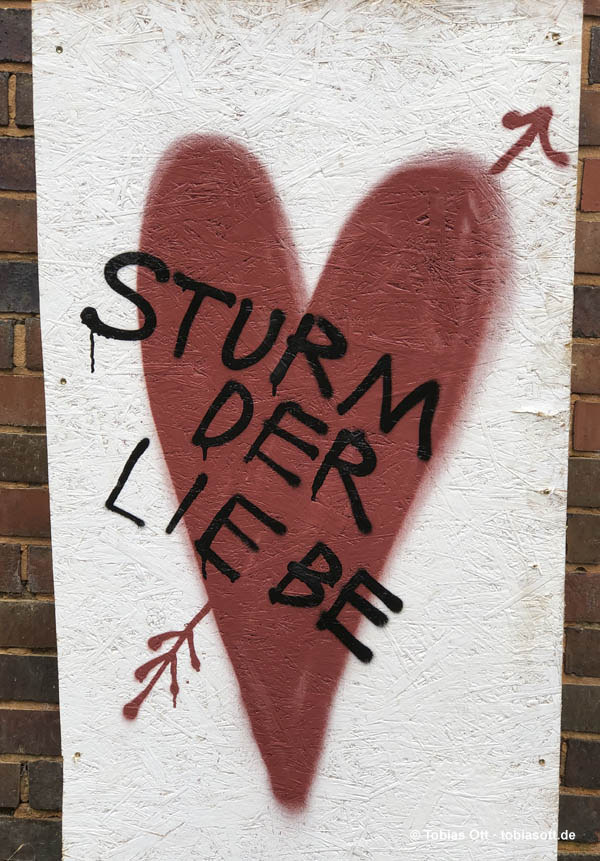 STURM
DER
LIEBE
© Tobias Ott - tobiasott.de